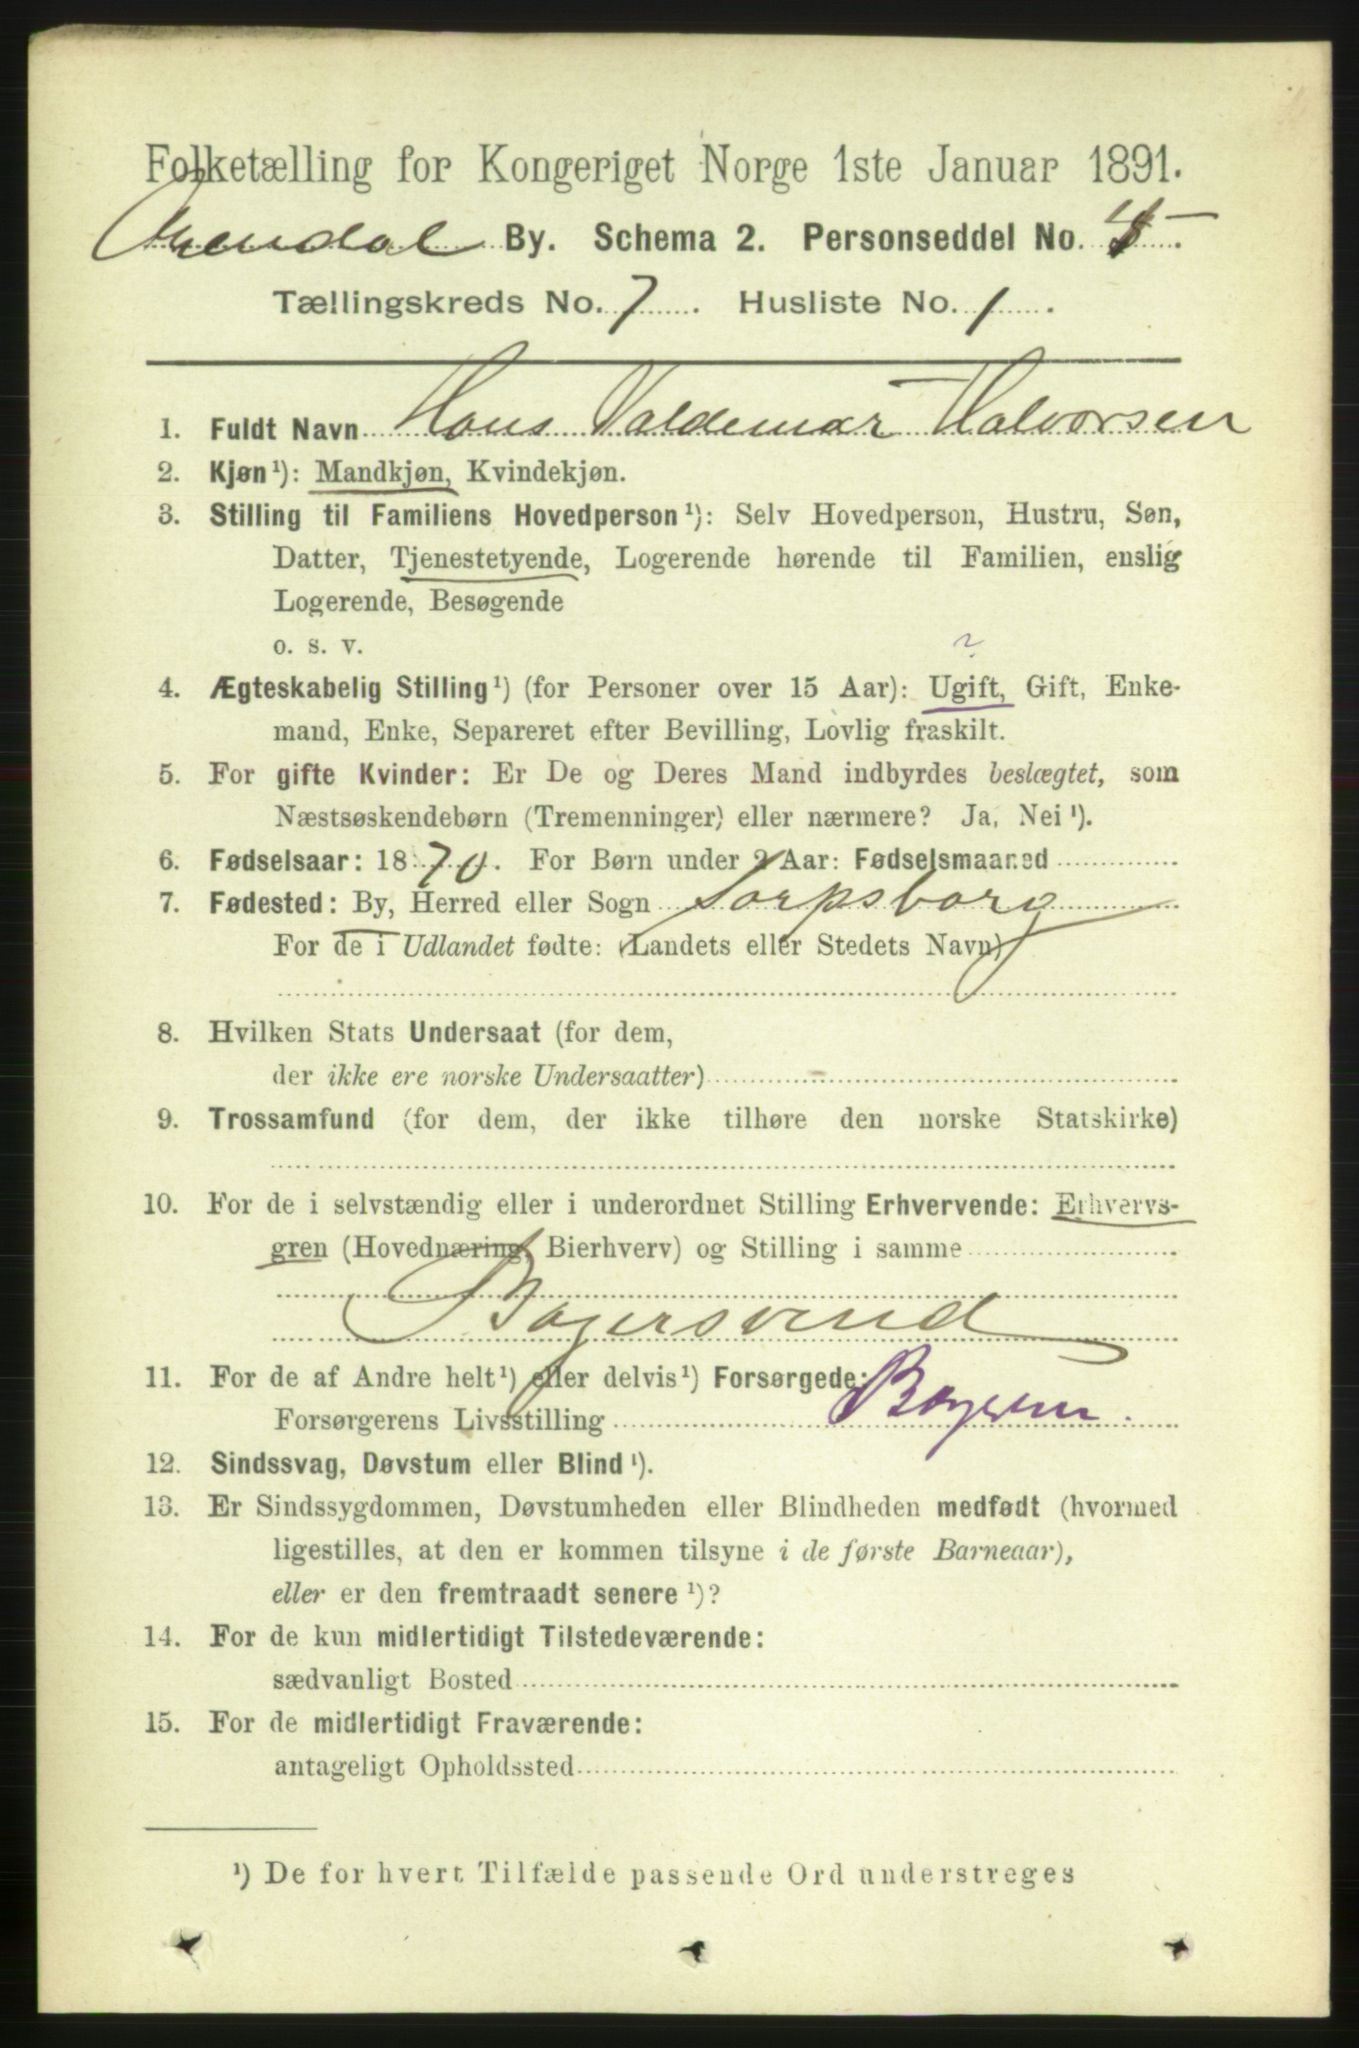 Folketælling for Kongeriget Norge 1ste Januar 1891.
Arendal By. Schema 2. Personseddel No. 5.
Tællingskreds No. 7. Husliste No. 1.
1. Fuldt Navn Hans Valdemar Halvorsen
2. Kjøn¹): Mandkjøn, Kvindekjøn.
3. Stilling til Familiens Hovedperson¹): Selv Hovedperson, Hustru, Søn,
Datter, Tjenestetyende, Logerende hørende til Familien, enslig
Logerende, Besøgende
o. s. v. ?
4. Ægteskabelig Stilling¹) (for Personer over 15 Aar): Ugift, Gift, Enke-
mand, Enke, Separeret efter Bevilling, Lovlig fraskilt.
5. For gifte Kvinder: Er De og Deres Mand indbyrdes beslægtet, som
Næstsøskendebørn (Tremenninger) eller nærmere? Ja, Nei¹).
6. Fødselsaar: 1870. For Børn under 2 Aar: Fødselsmaaned
7. Fødested: By, Herred eller Sogn Sarpsborg
For de i Udlandet fødte: (Landets eller Stedets Navn)
8. Hvilken Stats Undersaat (for dem,
der ikke ere norske Undersaatter)
9. Trossamfund (for dem, der ikke tilhøre den norske Statskirke)
10. For de i selvstændig eller i underordnet Stilling Erhvervende: Erhvervs-
gren (Hovednæring, Bierhverv) og Stilling i samme
Bagersvend
11. For de af Andre helt¹) eller delvis¹) Forsørgede:
Forsørgerens Livsstilling
12. Sindssvag, Døvstum eller Blind¹).
13. Er Sindssygdommen, Døvstumheden eller Blindheden medfødt (hvormed
ligestilles, at den er kommen tilsyne i de første Barneaar),
eller er den fremtraadt senere¹)?
14. For de kun midlertidigt Tilstedeværende:
sædvanligt Bosted
15. For de midlertidigt Fraværende:
antageligt Opholdssted
¹) De for hvert Tilfælde passende Ord understreges